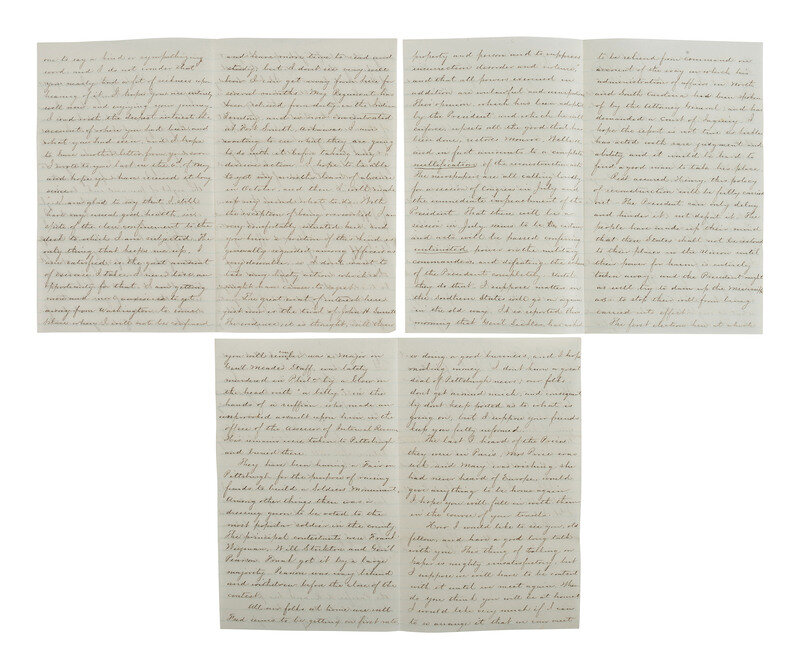 one to say a kind or sympathizing
word and I do not wonder that
you nearly had a fit of sickness upon
hearing of it. I hope you are entirely
well now and enjoying your journey
I read with the deepest interest the
account of where you had been and
what you had seen, and I hope
to have another letter from you soon.
I wrote to you last in
and hope you have received it long
since.
I am glad to say that I still
have my usual good health in
spite of the close confinement to the
desk to which I am subjected. The
only thing that keeps me up I
am satisfied is the great amount
of exercise I take. I never lose an
opportunity for that. I am getting
more and more anxious to get
away from Washington to some
place where I will not be confined
and have more time to read and
study, but I don't see very well
how I can get away from here for
several months. My Regiment has
been relieved from duty in the Indian
Territory and is now concentrated
at Fort Smith, Arkansas. I am
waiting to see what they are going
to do with it before taking any
decisive action. I hope to be able
to get my
in October and then I will make
up my mind what to do. With
the exception of being overworked I am
very comfortably situated here and
you know a position of this kind is
generally regarded in a different as
very desirable. So I don't want to
take any hasty action which I
might have cause to regret.
The great event of interest here
just now is the trial of John H. Surratt
The evidence it is thought, will
property and person and to suppress
insurrection disorder and violence
and that all power exercised in
addition are unlawful and usurped.
This opinion which has been adopted
by the President and which he will
enforce, upsets all the good that has
been done, restores Monroe, Wells &c
and in fact amounts to a complete
nullification of the reconstruction acts.
The newspapers are all calling loudly
for a session of Congress in July and
the immediate impeachment of the
President. That there will be a
session in July seems to be the opinion
and acts will be passed conferring
unlimited power on the military
commanders and defeating the
of the President completely. Until
they do that I suppose matters in
the Southern States will go on again
in the old way. It is reported this
morning that Genl Sickles has asked
to be relieved from Command on
account of the way in which his
administration of affairs in North
and South Carolina had been spoken
of by the Attorney General and has
demanded a Court of Inquiry. I
hope the report is not true as Sickles
has acted with rare judgment and
ability and it would be hard to
find a good man to take his place.
Rest assured Henry, this policy
of reconstruction will be fully carried
out. The President can only delay
and hinder it, not defeat it. The
people have made up their mind
that these States shall not be restored
to their places in the Union until
their power for harm is entirely
taken away and the President might
as well try to dam up the Mississippi
as to stop their will from being
carried into effect.
The first election here at which
you will remember was a Major on
Genl Meade's Staff, was lately
murdered in Phila by a blow on
the head with "a billy" in the
hands of a ruffian who made an
unprovoked assault upon him in the
office of the Assessor of Internal Revenue
His remains were taken to Pittsburgh
and buried there.
They have been having a Fair in
Pittsburgh for the purpose of raising
funds to build a Soldiers Monument.
Among other things there was a
dressing gown to be voted to the
most popular soldier in the county
The principal contestants were Frank
Wigman, Will Stockton and Genl
Pearson. Frank got it by a large
majority. Pearson was way behind
and withdrew before the close of the
contest.
All our folks at home are well
Fred seems to be getting on first rate
is doing a good business, and I hope
making money. I don't hear a great
deal of Pittsburgh news; our folks
don't get around much, and consequent
ly don't keep posted as to what is
going on, but I suppose your friends
keep you fully informed.
The last I heard of the Prices
they were in Paris; Mrs Price was
sick and Mary was wishing she
had never heard of Europe, would
give anything to be home again
I hope you will fall in with them
in the course of your travels.
How I would like to see you, old
fellow, and have a good long talk
with you. This thing of talking on
paper is mighty unsatisfactory, but
I suppose we will have to be content
with it until we meet again. When
do you think you will be at home?
I would like very much if I can
to so arrange it that we can meet